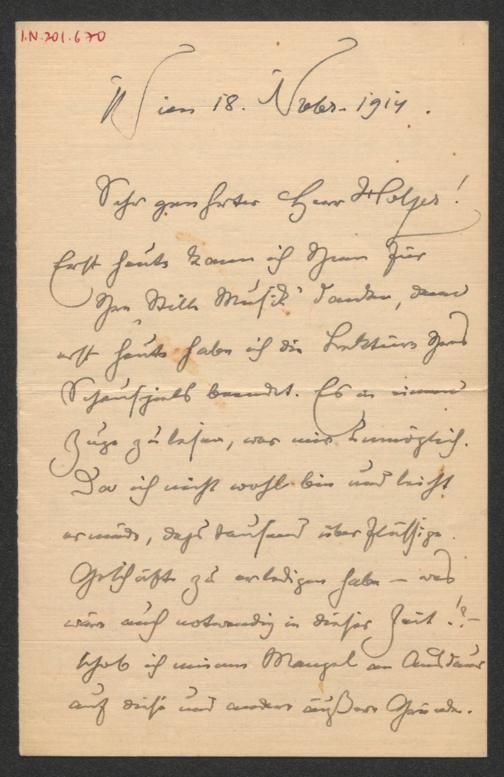 I.N. 201.670
Wien 18. Novber. 1914.
Sehr geehrter Herr Holzer!
Erst heute kann ich Ihnen für
Ihre Stille Musik danken, denn
erst heute habe ich die Lektüre Ihres
Schauspiels beendet. Es in einem
Zuge zu lesen, war mir unmöglich.
Da ich nicht wohl bin und leicht
ermüde, dazu tausend überflüssige
Geschäfte zu erledigen habe – was
wäre auch notwendig in dieser Zeit!? –
schob ich meinen Mangel an Ausdauer
auf diese und andere äußere Gründe.